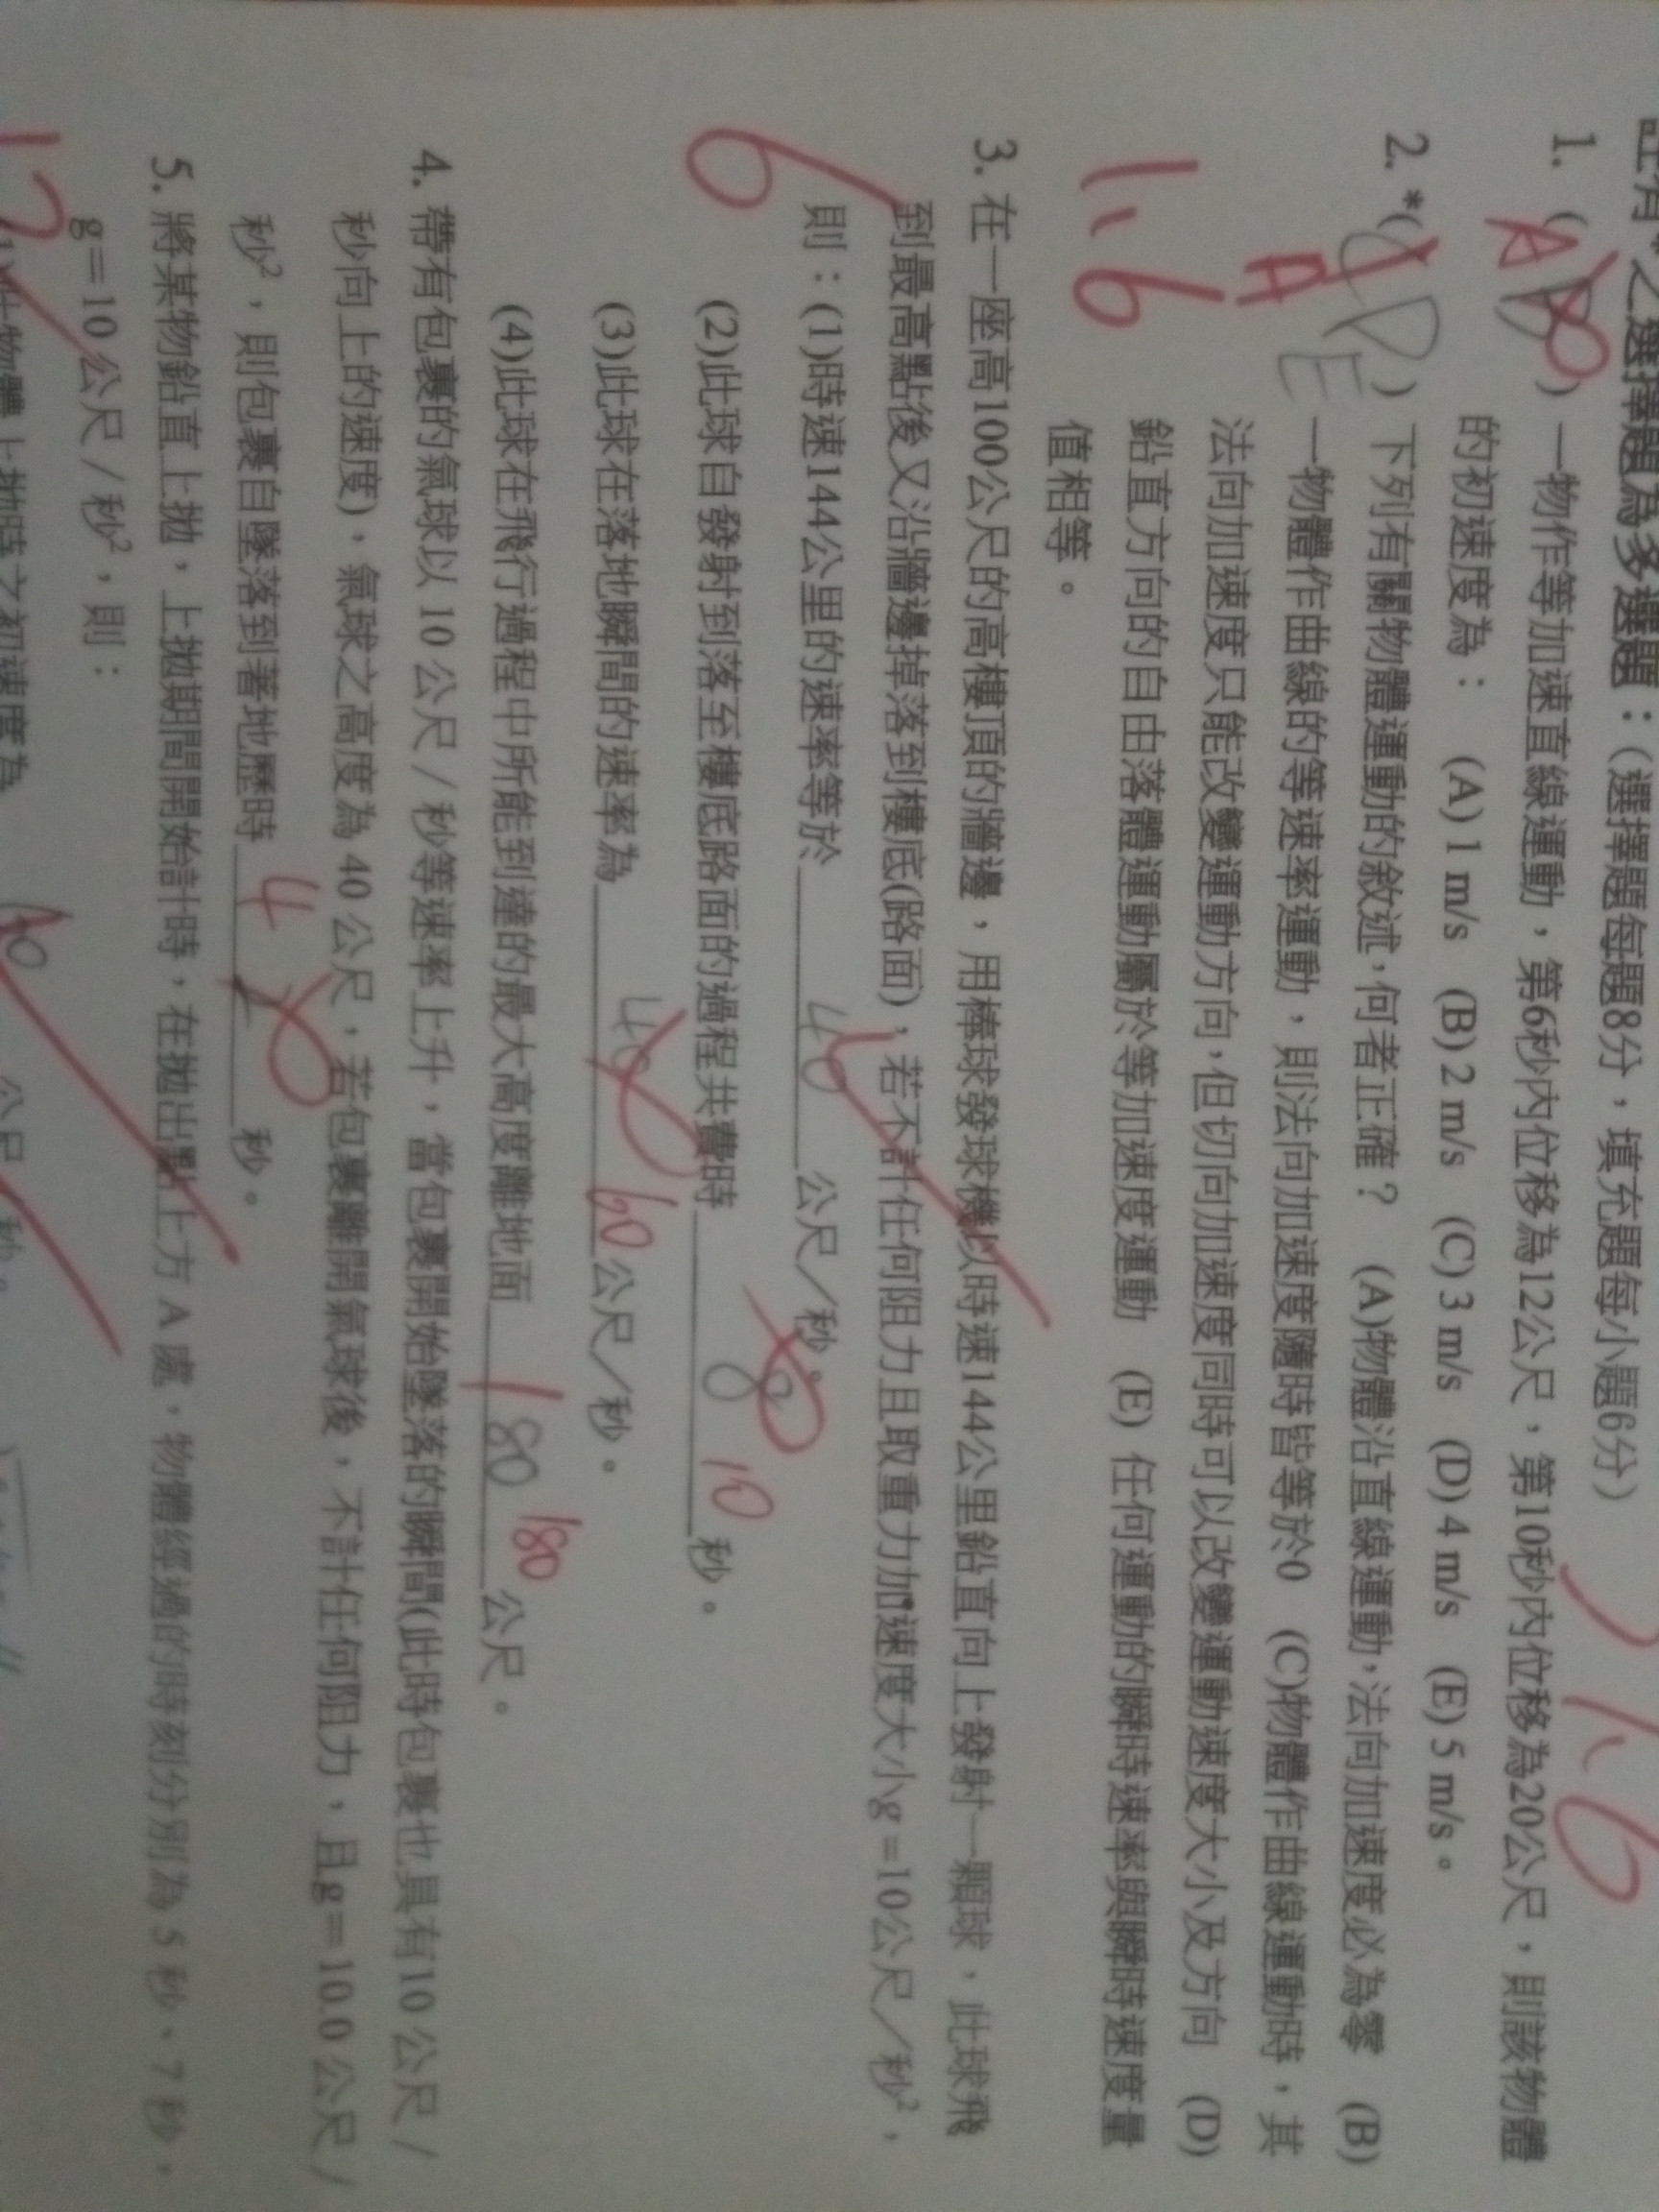 之選擇題為多選題：（選擇題每題8分，填充題每小題6分）
1.6
1. ( ) 一物作等加速直線運動，第6秒內位移為12公尺，第10秒內位移為20公尺，則該物體
A
的初速度為： (A) 1 m/s (B) 2 m/s (C) 3 m/s (D) 4 m/s (E) 5 m/s。
2. *( D ) 下列有關物體運動的敘述，何者正確？ (A)物體沿直線運動，法向加速度必為零 (B)
A E
一物體作曲線的等速率運動，則法向加速度隨時皆等於0 (C)物體作曲線運動時，其
法向加速度只能改變運動方向，但切向加速度同時可以改變運動速度大小及方向 (D)
1.6
鉛直方向的自由落體運動屬於等加速度運動 (E) 任何運動的瞬時速率與瞬時速度量
值相等。
3. 在一座高100公尺的高樓頂的牆邊，用棒球發球機以時速144公里鉛直向上發射一顆球，此球飛
到最高點後又沿牆邊掉落到樓底(路面)，若不計任何阻力且取重力加速度大小g =10公尺／秒²，
則：(1)時速144公里的速率等於 40 公尺／秒。
6
(2)此球自發射到落至樓底路面的過程共費時 8 10 秒。
(3)此球在落地瞬間的速率為 40 60 公尺／秒。
(4)此球在飛行過程中所能到達的最大高度離地面 180 180 公尺。
4. 帶有包裹的氣球以 10 公尺 / 秒等速率上升，當包裹開始墜落的瞬間(此時包裹也具有10 公尺 /
秒向上的速度)，氣球之高度為 40 公尺，若包裹離開氣球後，不計任何阻力，且g＝10.0 公尺 /
秒²，則包裹自墜落到著地歷時 4 2 秒。
5. 將某物鉛直上拋，上拋期間開始計時，在拋出點上方 A 處，物體經過的時刻分別為 5 秒、7 秒，
g＝10 公尺 / 秒²，則：
物體上拋時之初速度為 公尺 秒。